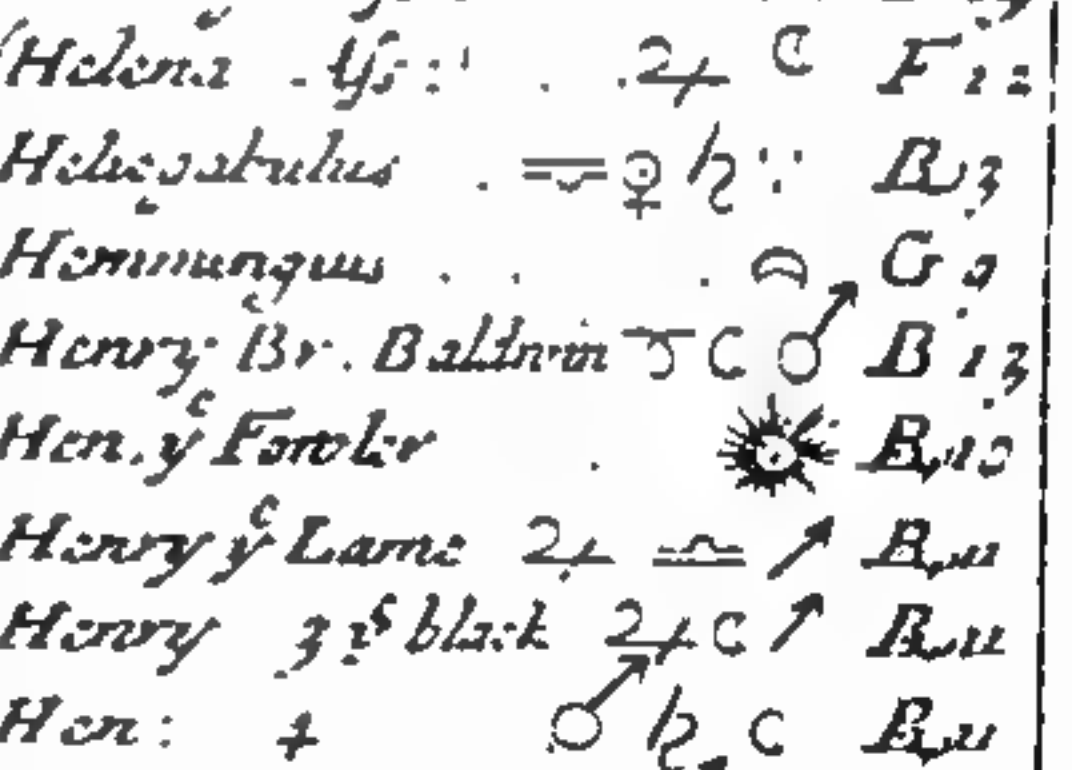 Helena . . ♃ ☾ F 12
Heliogabulus . ♀ ♄ ∵ B 3
Hemmingius . . . G 9
Henry Br. Baldwin ☾ ♂ B 13
Hen. yᵉ Fowler . B 10
Henry yᵉ Lame ♃ ♎ ➚ B 11
Henry 3 black ♃ ☾ ➚ B 11
Hen: 4 ♂ ♄ ☾ B 11